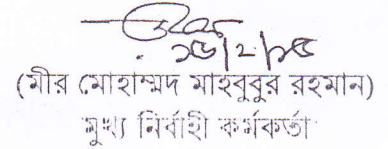 ১৬/২/১৫
(মীর মোহাম্মদ মাহবুবুর রহমান)
মুখ্য নির্বাহী কর্মকর্তা